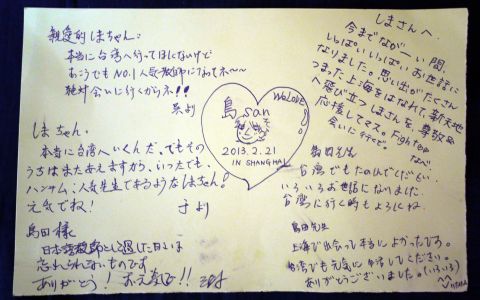 親愛的しまちゃん.
本当に台湾へ行ってほしくないけど
あっちでもNO.1人気教師になってネ〜〜
絶対会いに行くからネ!!
呉より
しまちゃん.
本当に台湾へいくんだ、でもその
うちはまたあえますから、いつでも、
ハンサム、人気先生であるようなしまちゃん!
元気でね!
于より
島田様
日本語教師として過した日々は
忘れられないものです
ありがとう! お元気で!!
島 san
We LOVE
2013.2.21
IN SHANGHAI
しまさんへ.
今までなが〜い間、
いっぱいいっぱいお世話に
なりました。思い出がたくさん
つまった上海をはなれて、新天地
へ飛び立つしまさんを、尊敬&
応援してマス。Fight
会いに行くで。
島田先生
台湾でもたのんでください.
いろいろお世話になりました.
台湾に行く時もよろしくね.
島田先生
上海で出会って本当によかったです。
台湾でも元気に生活してください。
ありがとうございました。(いろいろ)